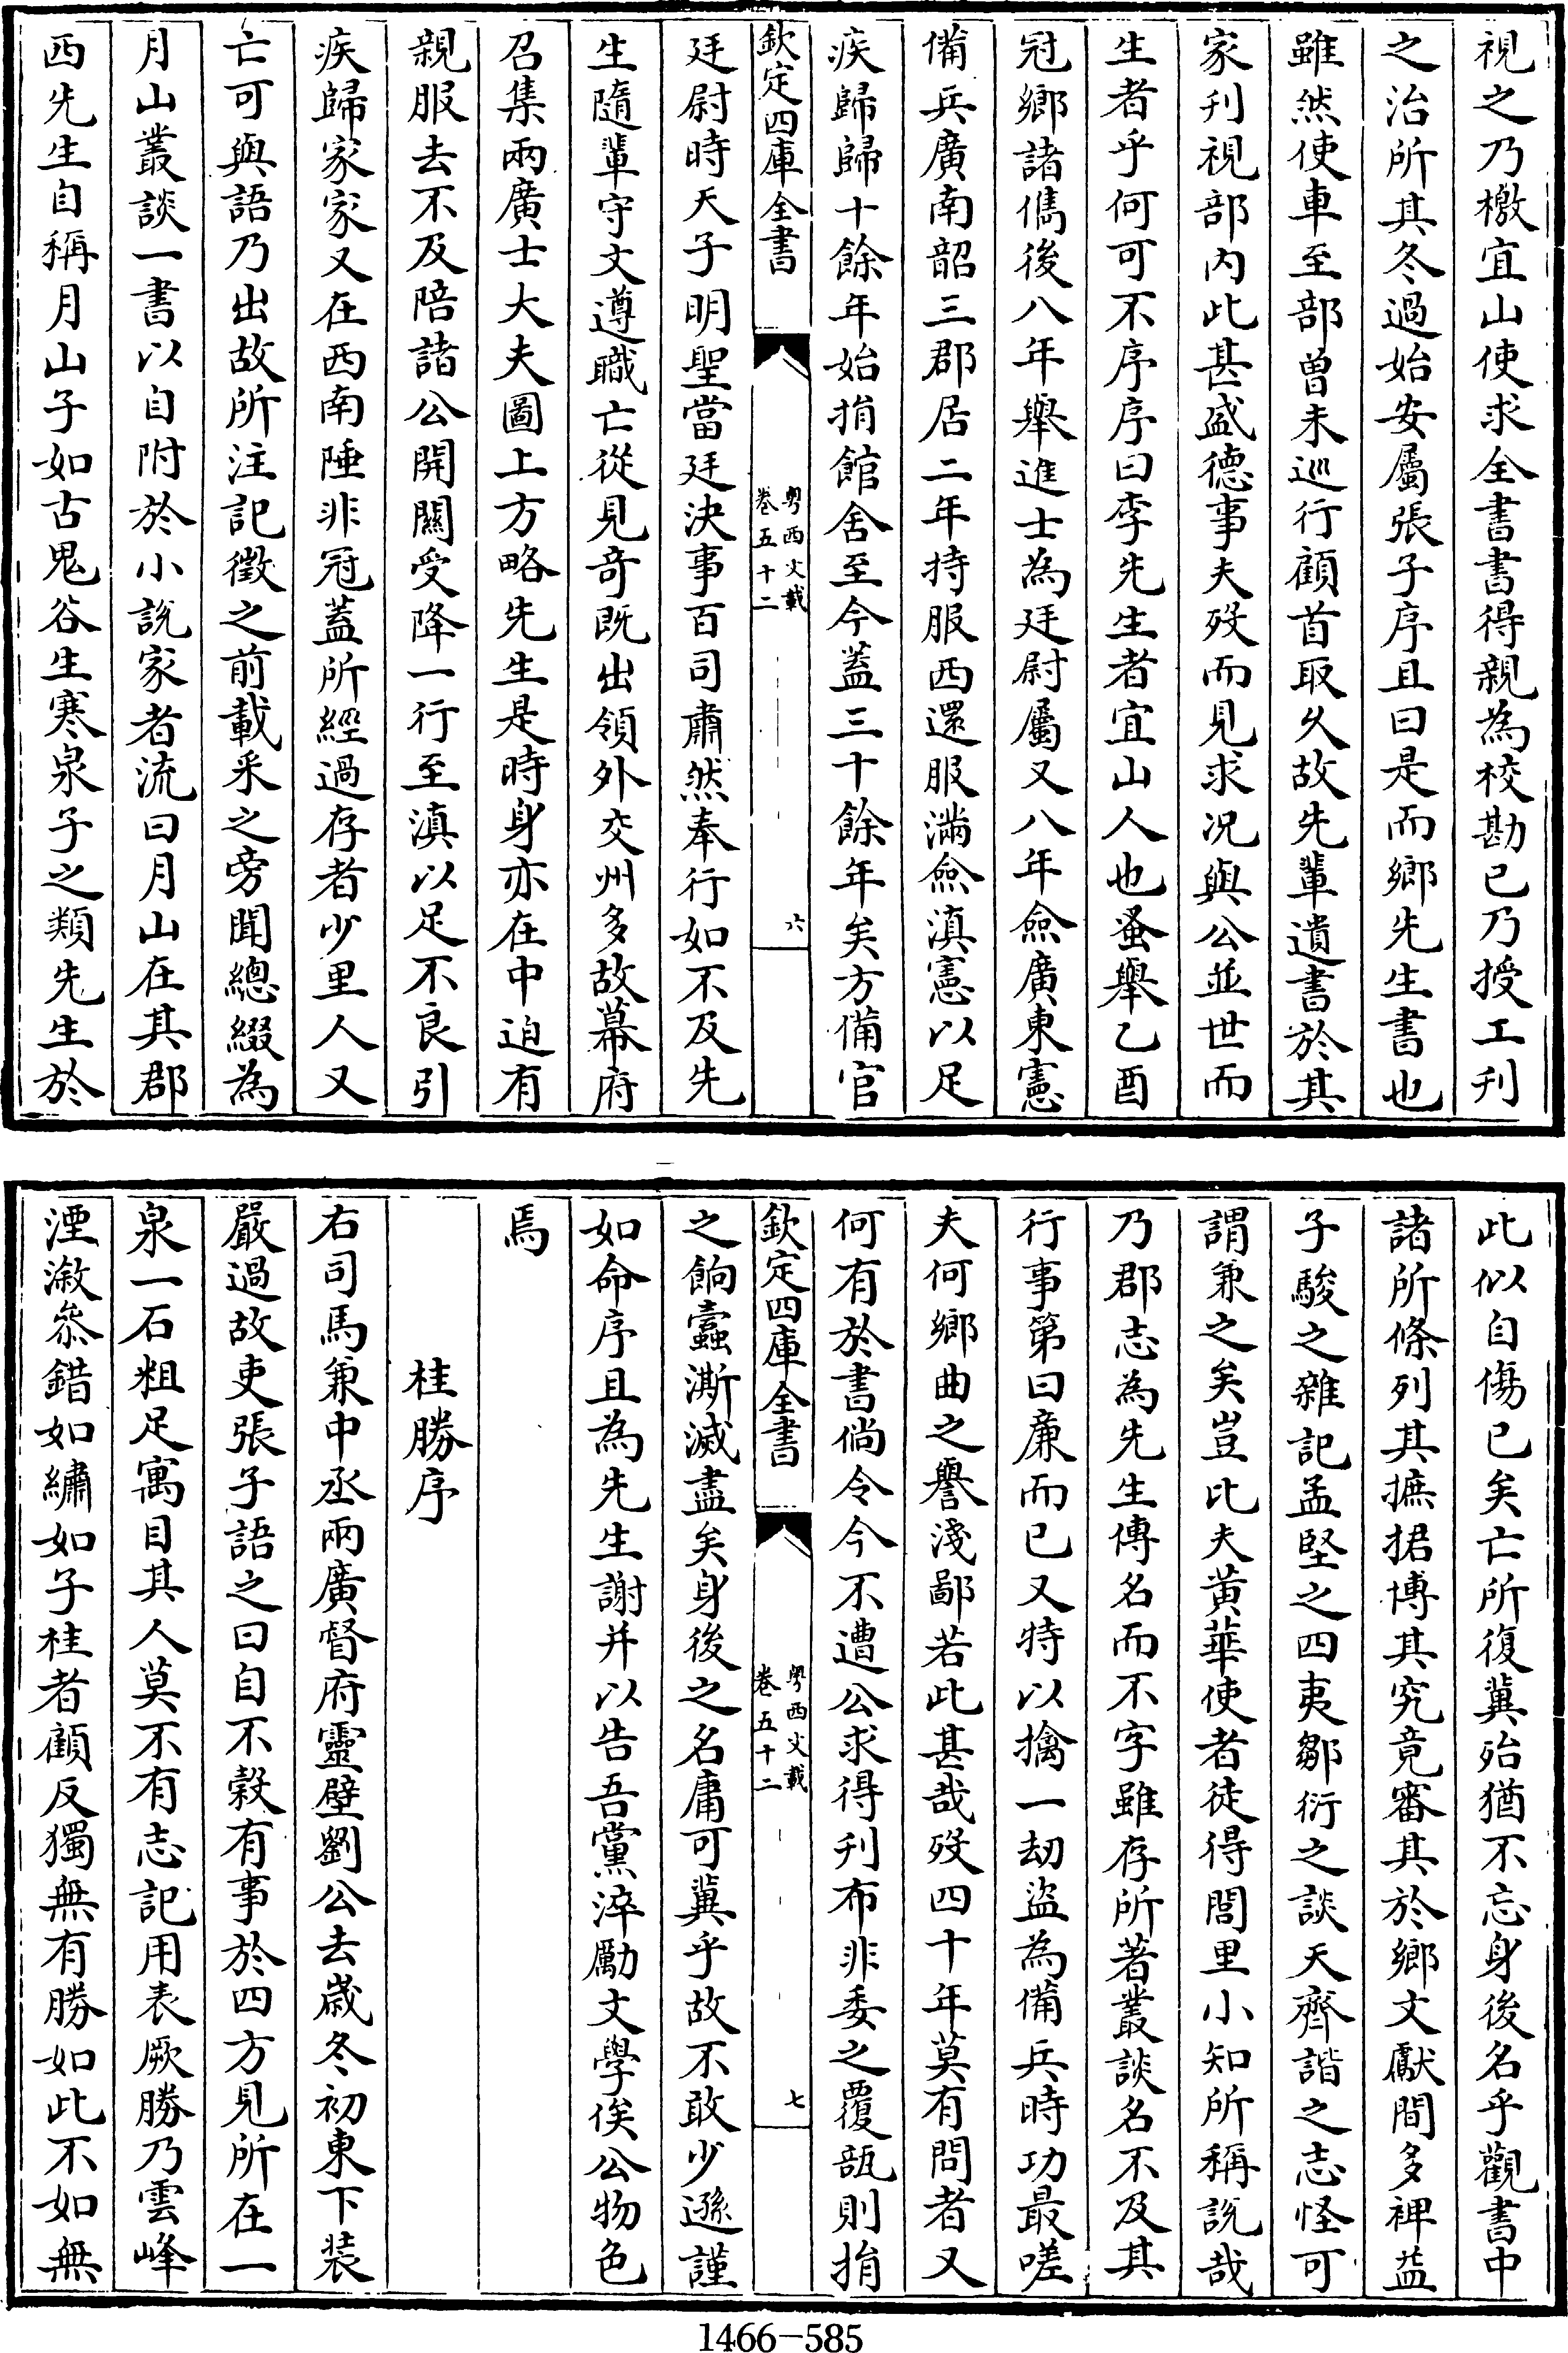 視之乃檄宜山使求全書書得親為校勘已乃授工刋
之治所其冬過始安屬張子序且曰是而鄉先生書也
雖然使車至部曾未巡行顧首取久故先輩遺書於其
家刋視部内此甚盛德事夫歿而見求況與公並世而
生者乎何可不序序曰李先生者宜山人也蚤舉乙酉
冠鄉諸儁後八年舉進士為廷尉屬又八年僉廣東憲
備兵廣南韶三郡居二年持服西還服滿僉滇憲以足
疾歸歸十餘年始捐館舍至今蓋三十餘年矣方備官
欽定四庫全書
粤西文載
卷五十二
六
廷尉時天子明聖當廷決事百司肅然奉行如不及先
生隨輩守文遵職亡從見奇既出領外交州多故幕府
召集兩廣士大夫圖上方略先生是時身亦在中迫有
親服去不及陪諸公開關受降一行至滇以足不良引
疾歸家家又在西南陲非冠蓋所經過存者少里人又
亡可與語乃出故所注記徵之前載采之旁聞總綴為
月山叢談一書以自附於小説家者流曰月山在其郡
西先生自稱月山子如古鬼谷生寒泉子之類先生於
此似自傷已矣亡所復冀殆猶不忘身後名乎觀書中
諸所條列其摭捃博其究竟審其於鄉文獻間多裨益
子駿之雜記孟堅之四夷鄒衍之談天齊諧之志怪可
謂兼之矣豈比夫黄華使者徒得閭里小知所稱説哉
乃郡志為先生傳名而不字雖存所著叢談名不及其
行事第曰廉而已又特以擒一刼盜為備兵時功最嗟
夫何鄉曲之譽淺鄙若此甚哉歿四十年莫有問者又
何有於書尚令今不遭公求得刋布非委之覆瓿則捐
欽定四庫全書
粤西文載
卷五十二
七
之餉蠧澌滅盡矣身後之名庸可冀乎故不敢少遜謹
如命序且為先生謝并以告吾黨淬勵文學俟公物色
焉
桂勝序
右司馬兼中丞兩廣督府靈壁劉公去歲冬初東下装
嚴過故吏張子語之曰自不榖有事於四方見所在一
泉一石粗足寓目其人莫不有志記用表厥勝乃雲峰
湮漵叅錯如繡如子桂者顧反獨無有勝如此不如無
1466-585